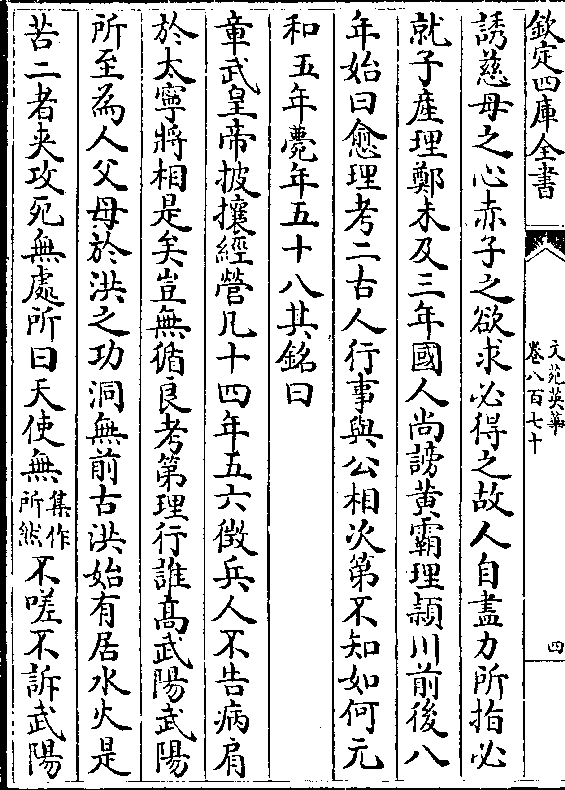 欽定四庫全書
文苑英華
卷八百七十
四
誘慈母之心赤子之欲求必得之故人自盡力所指必
就子產理鄭未及三年國人尚謗黃霸理潁川前後八
年始曰愈理考二古人行事與公相次第不知如何元
和五年薨年五十八其銘曰
章武皇帝披攘經營凡十四年五六徵兵人不告病肩
於太寧將相是矣豈無循良考第理行誰高武陽武陽
所至為人父母於洪之功洞無前古洪始有居水火是
苦二者夾攻死無處所曰天使無集作所然不嗟不訴武陽